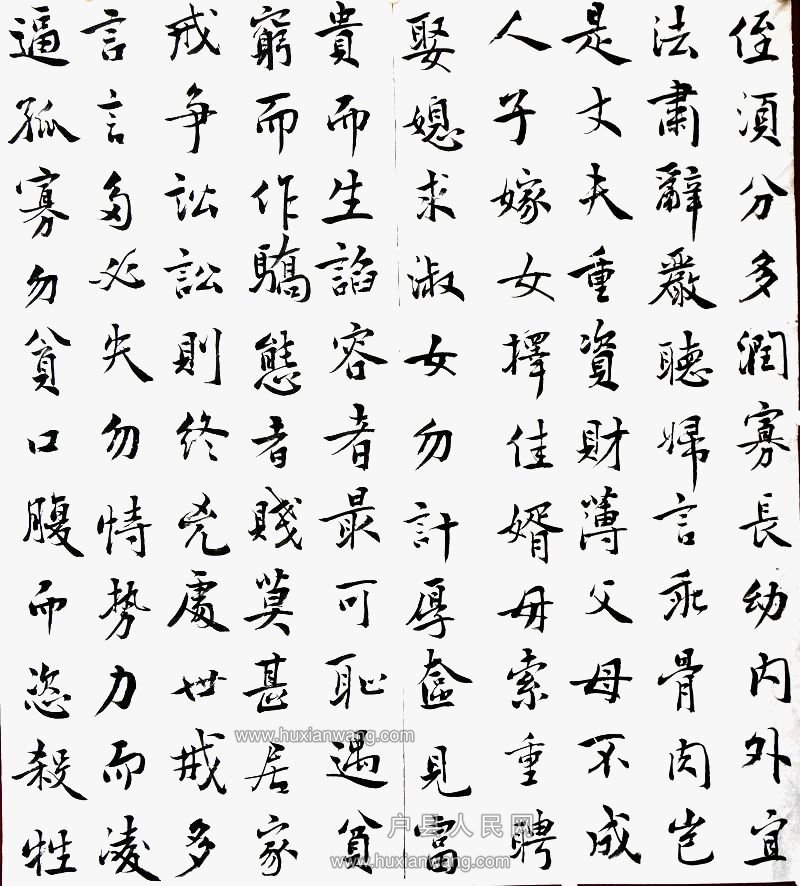 侄須分多潤寡長幼內外宜
法肅辭嚴聽婦言乖骨肉豈
是丈夫重資財薄父母不成
人子嫁女擇佳婿毋索重聘
娶媳求淑女勿計厚奩見富
貴而生諂容者最可恥遇貧
窮而作驕態者賤莫甚居家
戒争訟訟則終兇處世戒多
言言多必失勿恃勢力而凌
逼孤寡勿貪口腹而恣殺牲
www.huxianwang.com
户县人民网
www.huxianwang.com